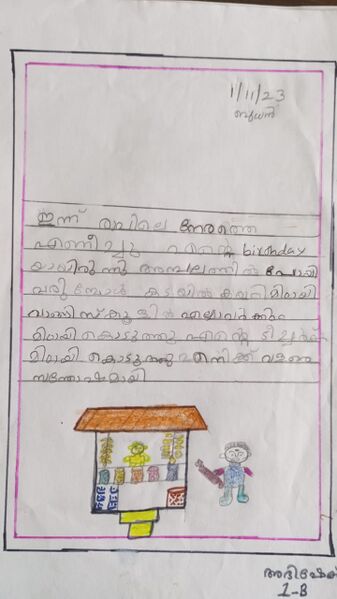 1/11/23
ബുധൻ
ഇന്ന് രാവിലെ നേരത്തെ
എണീച്ചു എന്റെ birthday
യായിരുന്നു അമ്പലത്തിൽ പോയി
വരുമ്പോൾ കടയിൽ കയറി മിഠായി
വാങ്ങി സ്കൂളിൽ എല്ലാവർക്കും
മിഠായി കൊടുത്തു എന്റെ ടീച്ചർക്ക്
മിഠായി കൊടുത്തു എനിക്ക് വളരെ
സന്തോഷമായി
അഭിഷേക്
1-B